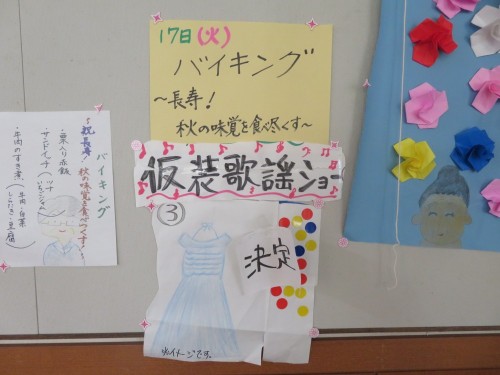 17日(火)
バイキング
～長寿！
秋の味覚を食べ尽くす～
仮装歌謡ショー
③
決定
※イメージです。
バイキング
祝長寿！
秋の味覚を食べつくす
・栗入り赤飯
・サンドイッチ
ツナ
いちごジャム
・牛肉のすき煮
牛肉・白菜
しらたき・豆腐